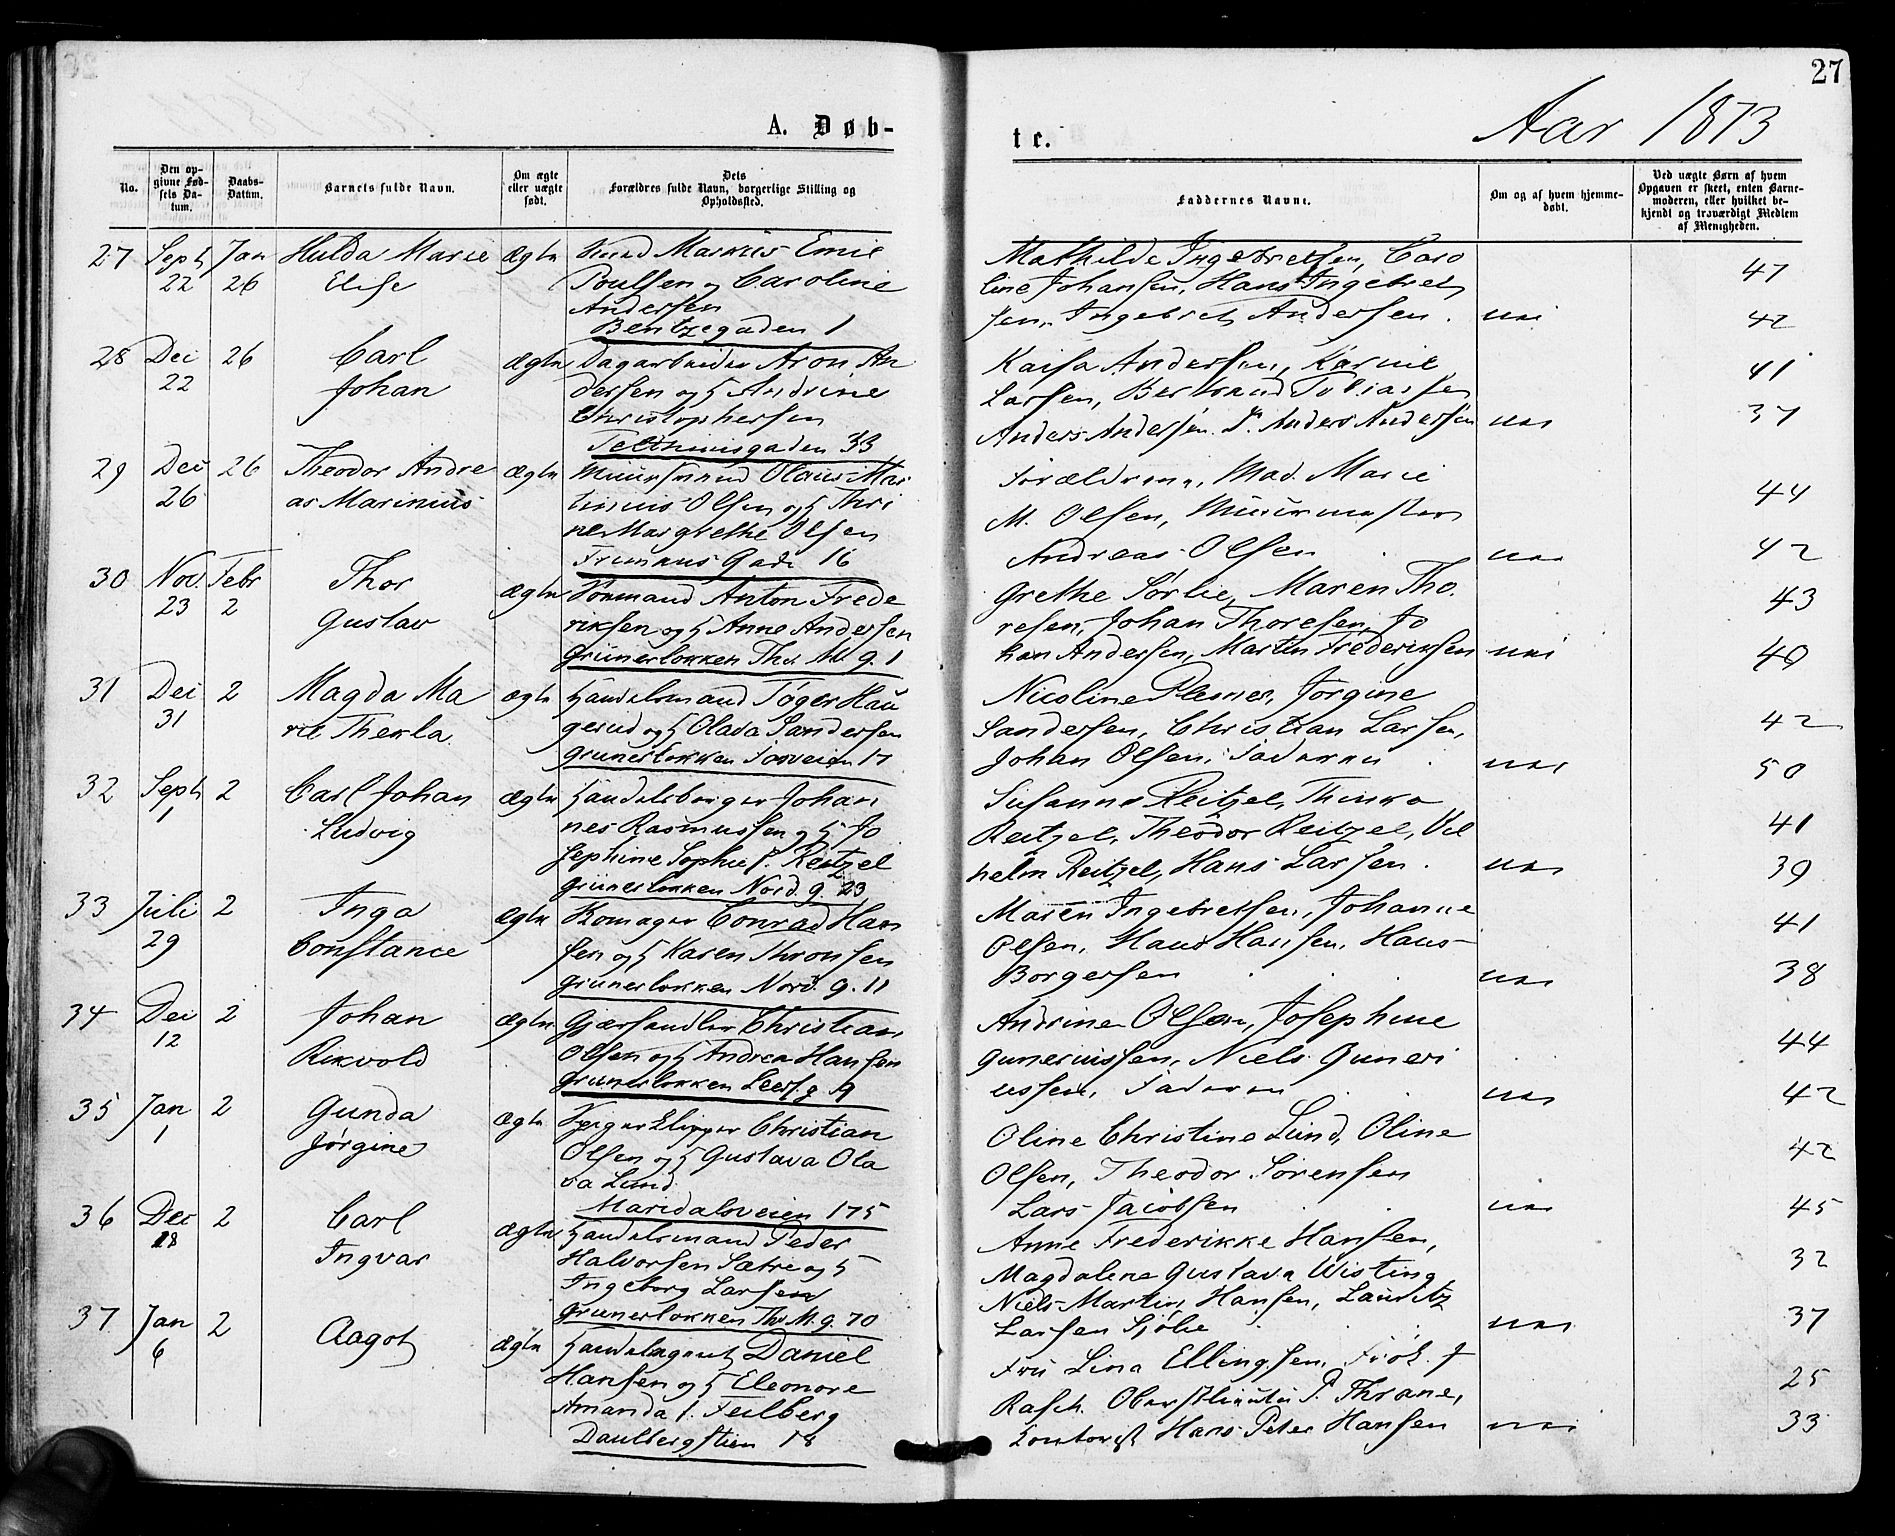 27
Aar 1873
A. Døb-
te.
No.
Den op-
givne Fød-
sels Da-
tum.
Daabs-
Datum.
Barnets fulde Navn.
Om ægte
eller uægte
født.
Dets
Forældres fulde Navn, borgerlige Stilling og
Opholdssted.
Faddernes Navne.
Om og af hvem hjemme-
døbt.
Ved uægte Børn af hvem
Opgaven er skeet, enten Barne-
moderen, eller hvilket be-
kjendt og troværdigt Medlem
af Menigheden.
27 Sept Jan Hulda Marie ægte Smed Markus Emil
22 26 Elise Poulsen og Caroline
Andersen
Bentzegaden 1
Mathilde Ingebretsen, Caro
line Johansen, Hans Ingebret
sen, Ingebret Andersen. nei
47
42
28 Dec 26 Carl ægte Dagarbeider Aron An
22 Johan dersen og H Andrine
Christophersen
Telthuusgaden 33
Kaisa Andersen, Karine
Larsen, Bertrand Tobiassen
Anders Andersen. S. Anders Andersen nei
41
37
29 Dec 26 Theodor Andre ægte Muursvend Olaus Mar
26 as Marinius tinius Olsen og H Thri
ne Margrethe Olsen
Fremans Gade 16
Forældrene, Mad. Marie
M. Olsen, Muurmester
Andreas Olsen nei
44
42
30 Nov. Febr Thor ægte Formand Anton Frede
23 2 Gustav riksen og H Anne Andersen
Grünerløkken Th. M. g. 1
Grethe Sørlie, Maren Tho
resen, Johan Thoresen, Jo
han Andersen, Martin Frederiksen nei
43
40
31 Dec 2 Magda Ma ægte Handelsmand Tøger Hau
31 rie Thekla gerud og H Olava Sandersen
Grünerløkken 17
Nicoline Plesner, Jørgine
Sandersen, Christian Larsen,
Johan Olsen, Faderen nei
42
50
32 Sept 2 Carl Johan ægte Handelsborger Johan
1 Ludvig nes Rasmussen og H Jo
sephine Sophie f. Reitzel
Grünerløkken Nord. g. 23
Susanne Reitzel, Thinka
Reitzel, Theodor Reitzel, Vil
helm Reitzel, Hans Larsen. nei
41
39
33 Juli 2 Inga ægte Komager Conrad Han
29 Constance sen og H Karen Thronsen
Grünerløkken Nord. g. 11
Maren Ingebretsen, Johanne
Olsen, Hans Hansen, Hans
Borgersen nei
41
38
34 Dec 2 Johan ægte Gjærhandler Christian
12 Rikvold Olsen og H Andrea Hansen
Grünerløkken Leers. g 9
Andrine Olsen, Josephine
Guneriussen, Niels Guneri
ussen, Faderen nei
44
42
35 Jan 2 Gunda ægte Christian
1 Jørgine Olsen og H Gustava Ola
va Lund
Maridalsveien 175
Oline Christine Lund, Oline
Olsen, Theodor Sørensen
Lars Jacobsen nei
42
45
36 Dec 2 Carl ægte Handelsmand Peder
18 Ingvar Halvorsen Sætre og H
Ingeborg Larsen
Grünerløkken Th. M. g. 70
Anne Frederikke Hansen,
Magdalene Gustava Wisting
Niels Martin Hansen, Lauritz
Larsen Sjølie nei
32
37
37 Jan 2 Aagot ægte Handelsagent Daniel
6 Hansen og H Eleonore
Amanda f. Feilberg
Daulbergstien 18
Fru Lina Ellingsen, Frøk. J
Rasch. Oberstlieutn P. Thrane,
Kontorist Hans Peter Hansen nei
25
33